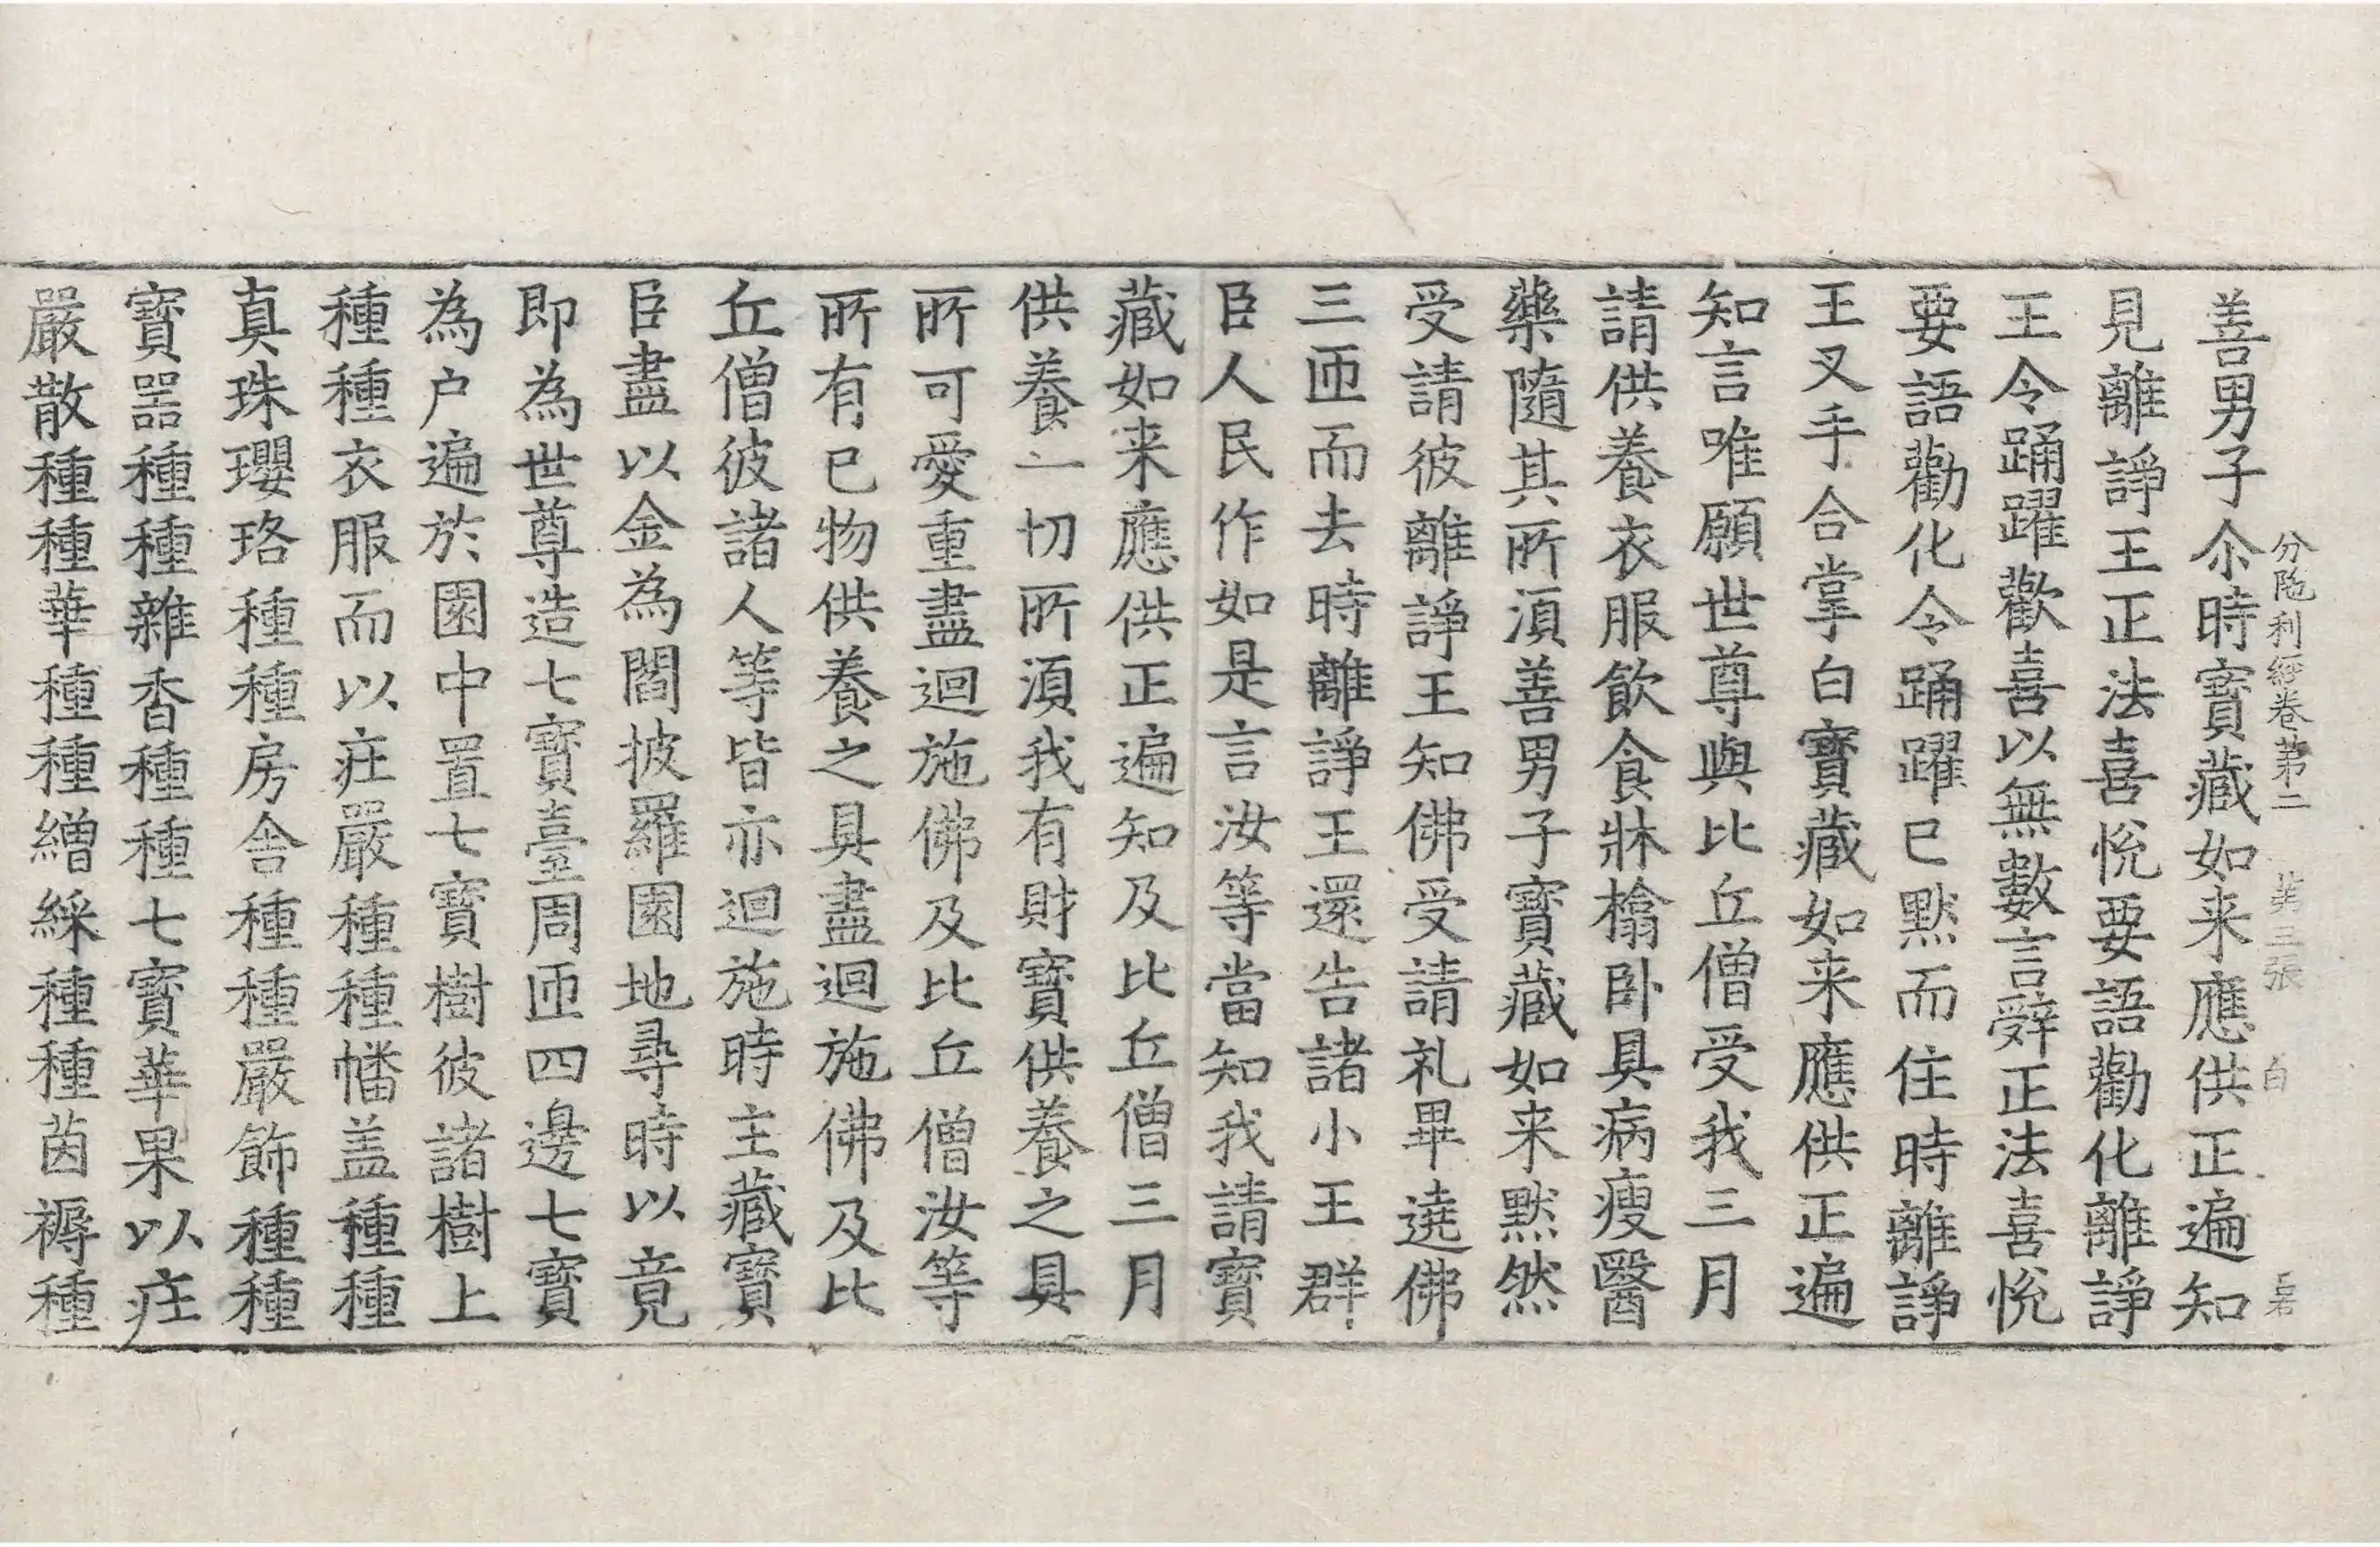 分陁利經卷第二 第三張 白
善男子尒時寶藏如来應供正遍知
見離諍王正法喜悅要語勸化離諍
王令踊躍歡喜以無數言辤正法喜悅
要語勸化令踊躍已默而住時離諍
王叉手合掌白寶藏如来應供正遍
知言唯願世尊與比丘僧受我三月
請供養衣服飲食牀橣卧具病瘦醫
藥隨其所湏善男子寶藏如来默然
受請彼離諍王知佛受請礼畢遶佛
三匝而去時離諍王還告諸小王群
臣人民作如是言汝等當知我請寶
藏如来應供正遍知及比丘僧三月
供養一切所湏我有財寶供養之具
所可愛重盡迴施佛及比丘僧汝等
所有已物供養之具盡迴施佛及比
丘僧彼諸人等皆亦迴施時主藏寶
臣盡以金為閻披羅園地尋時以竟
即為世尊造七寶臺周匝四邊七寶
為户遍於園中置七寶樹彼諸樹上
種種衣服而以疘嚴種種幡盖種種
真珠瓔珞種種房舍種種嚴飾種種
寶噐種種雜香種種七寶華果以疘
嚴散種種華種種繒綵種種茵褥種